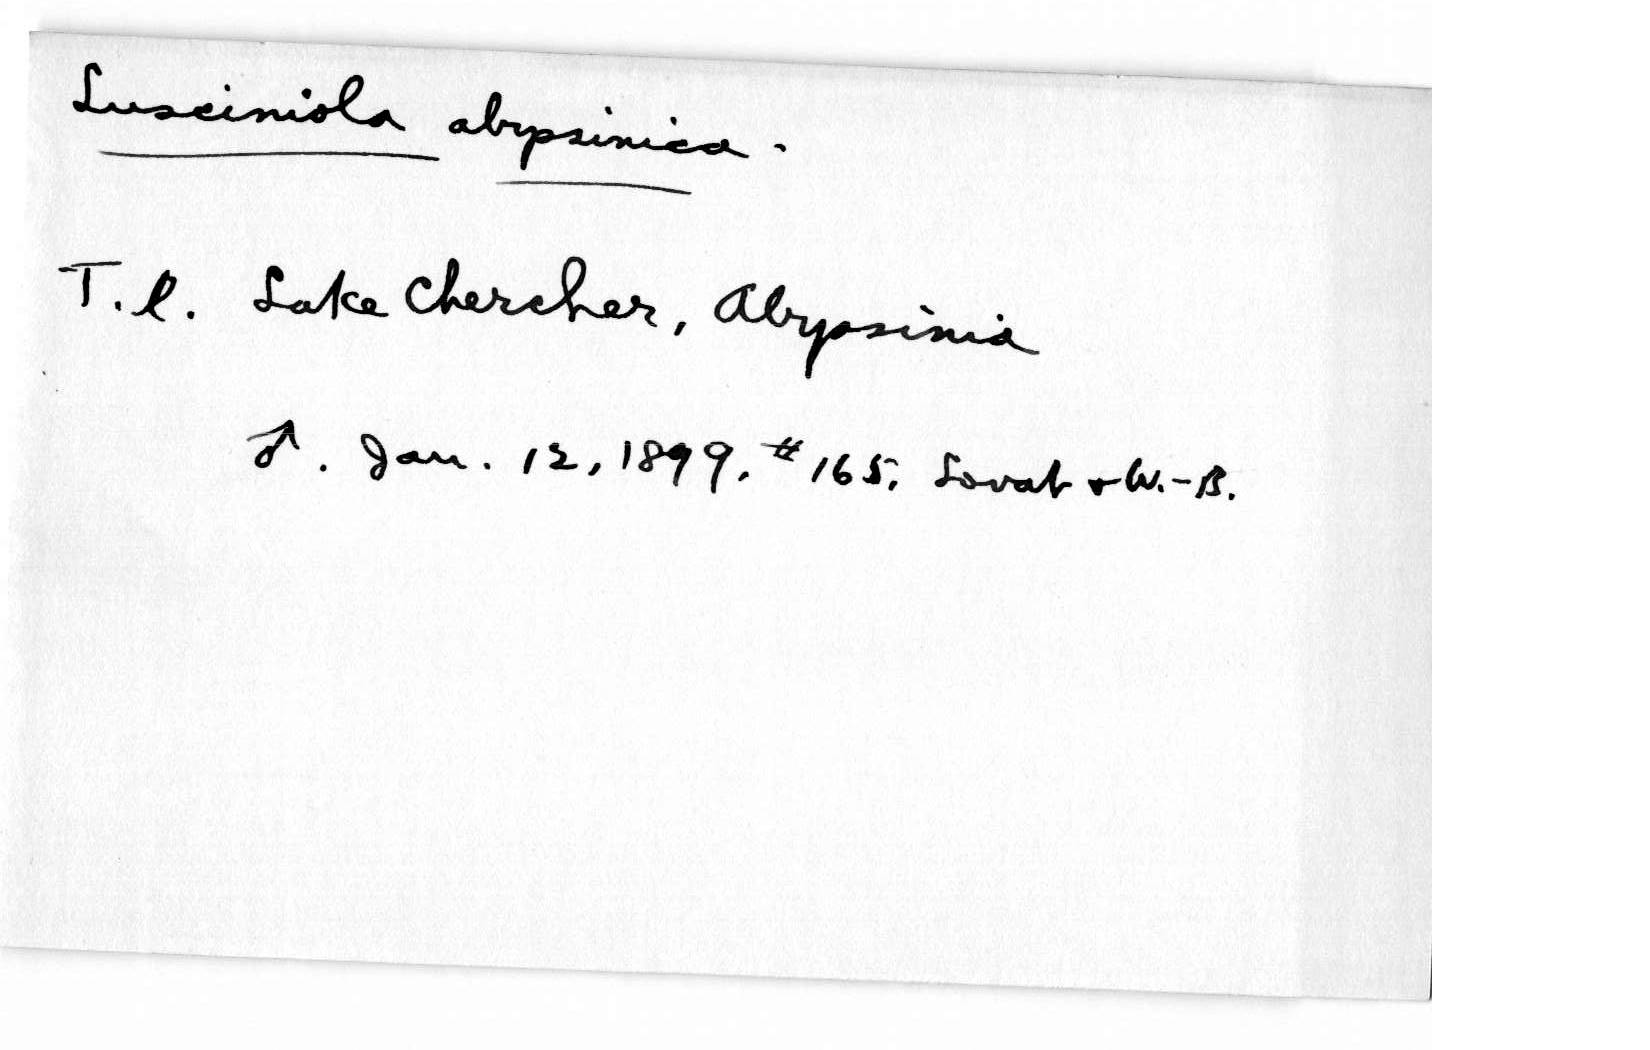 Lusciniola abyssinica.
T.l. Lake Chercher, Abyssinia
♂. Jan. 12, 1899, #165, Lovat & W.-B.